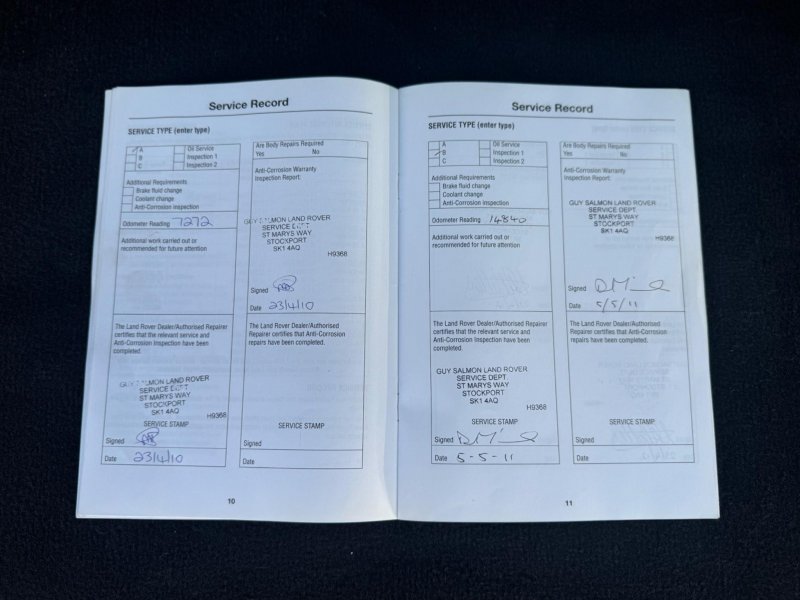 Service Record
SERVICE TYPE (enter type)
A
B
C
Oil Service
Inspection 1
Inspection 2
Additional Requirements
Brake fluid change
Coolant change
Anti-Corrosion inspection
Odometer Reading 7272
Additional work carried out or
recommended for future attention
The Land Rover Dealer/Authorised Repairer
certifies that the relevant service and
Anti-Corrosion Inspection have been
completed.
GUY SALMON LAND ROVER
SERVICE DEPT
ST MARYS WAY
STOCKPORT
SK1 4AQ
H9368
SERVICE STAMP
Signed
Date 23/4/10
Are Body Repairs Required
Yes No
Anti-Corrosion Warranty
Inspection Report:
GUY SALMON LAND ROVER
SERVICE DEPT
ST MARYS WAY
STOCKPORT
SK1 4AQ
H9368
Signed
Date 23/4/10
The Land Rover Dealer/Authorised
Repairer certifies that Anti-Corrosion
repairs have been completed.
SERVICE STAMP
Signed
Date
10
Service Record
SERVICE TYPE (enter type)
A
B
C
Oil Service
Inspection 1
Inspection 2
Additional Requirements
Brake fluid change
Coolant change
Anti-Corrosion inspection
Odometer Reading 14840
Additional work carried out or
recommended for future attention
The Land Rover Dealer/Authorised Repairer
certifies that the relevant service and
Anti-Corrosion Inspection have been
completed.
GUY SALMON LAND ROVER
SERVICE DEPT.
ST MARYS WAY
STOCKPORT
SK1 4AQ
H9368
SERVICE STAMP
Signed
Date 5-5-11
Are Body Repairs Required
Yes No
Anti-Corrosion Warranty
Inspection Report:
GUY SALMON LAND ROVER
SERVICE DEPT.
ST MARYS WAY
STOCKPORT
SK1 4AQ
H9368
Signed
Date 5/5/11
The Land Rover Dealer/Authorised
Repairer certifies that Anti-Corrosion
repairs have been completed.
SERVICE STAMP
Signed
Date
11